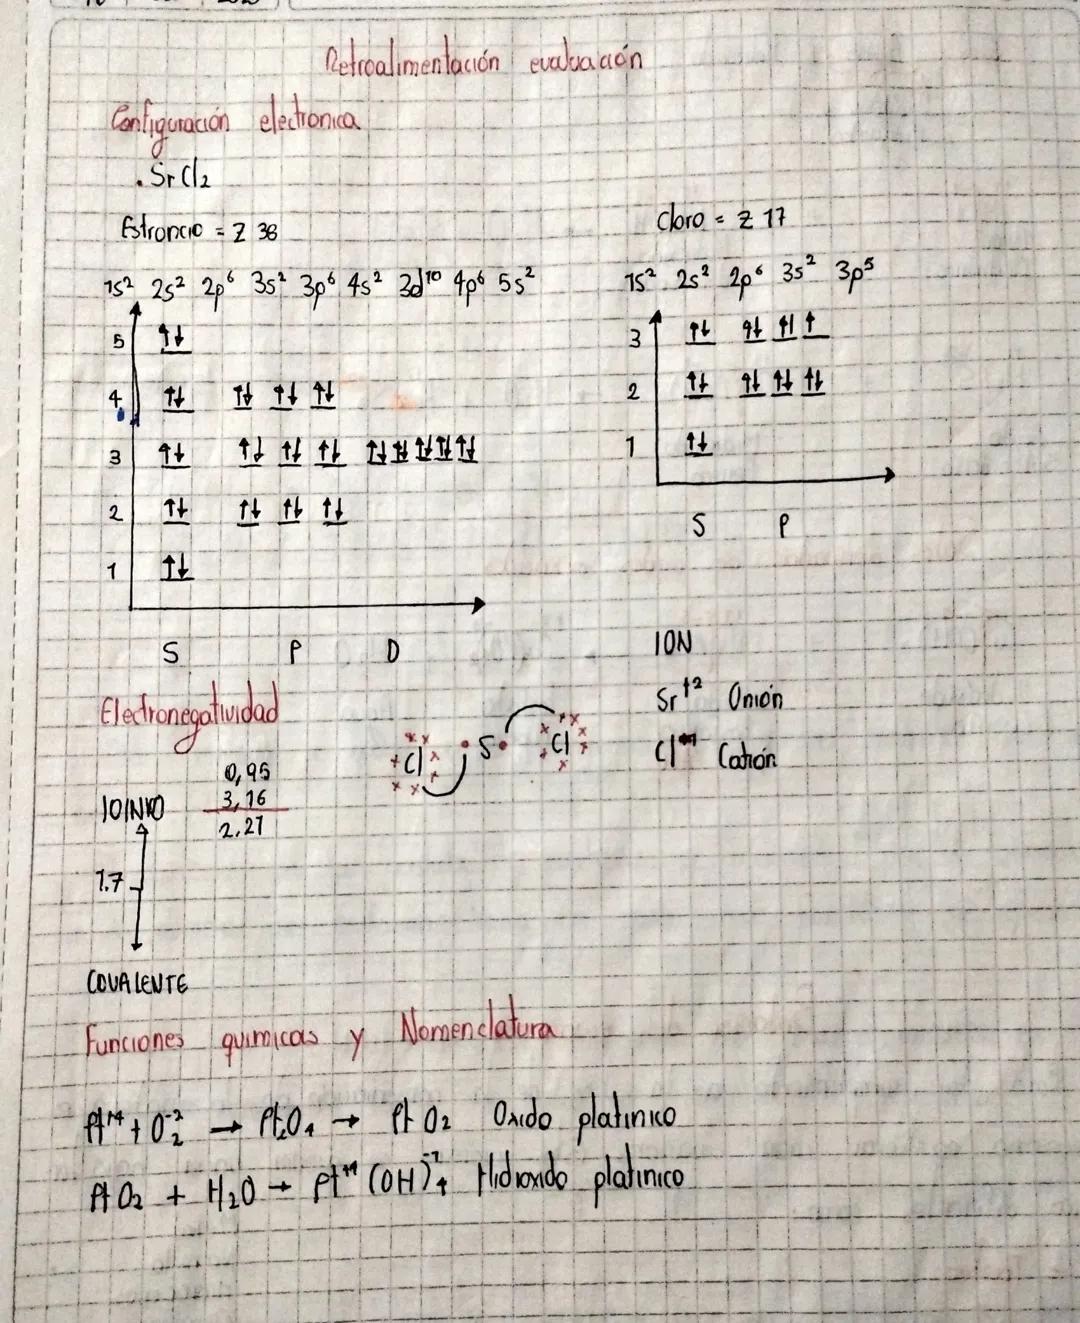 Retroalimentación evaluación
Configuración electronica
. SrCl2
Estroncio = Z 38
1s² 2s² 2p⁶ 3s² 3p⁶ 4s² 3d¹⁰ 4p⁶ 5s²
5 ↑↓
4 ↑↓ ↑↓ ↑↓ ↑↓
3 ↑↓ ↑↓ ↑↓ ↑↓ ↑↓ ↑↓ ↑↓ ↑↓ ↑↓
2 ↑↓ ↑↓ ↑↓ ↑↓
1 ↑↓
S P D
Cloro = Z 17
1s² 2s² 2p⁶ 3s² 3p⁵
3 ↑↓ ↑↓ ↑↓ ↑
2 ↑↓ ↑↓ ↑↓ ↑↓
1 ↑↓
S P
ION
Sr⁺² Onión
Cl Catión
Electronegatividad
Cl S Cl
0,95
3,16
2,21
IOINICO
1.7
COVALENTE
Funciones quimicas y Nomenclatura
Pt⁺⁴ + O₂⁻² → Pt₂O₄ → PtO₂ Oxido platinico
PtO₂ + H₂O → Pt⁺⁴(OH)₄⁻¹ Hidroxido platinico